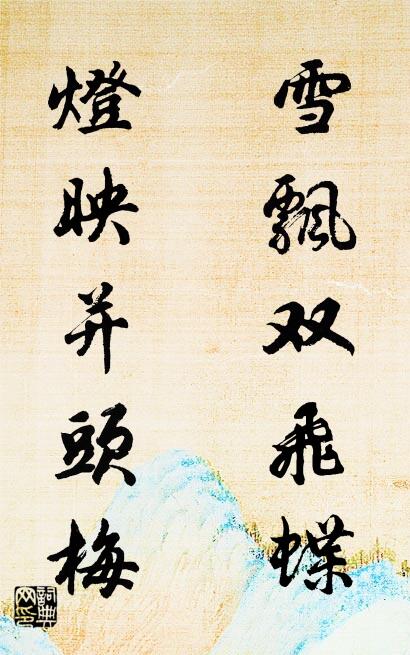 雪飄双飛蝶
燈映并頭梅
詞典
网